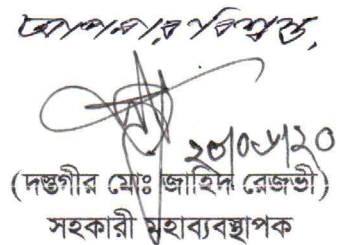 আপনার বিশ্বস্ত,
(দস্তগীর মোঃ জাহিদ রেজভী)
সহকারী মহাব্যবস্থাপক